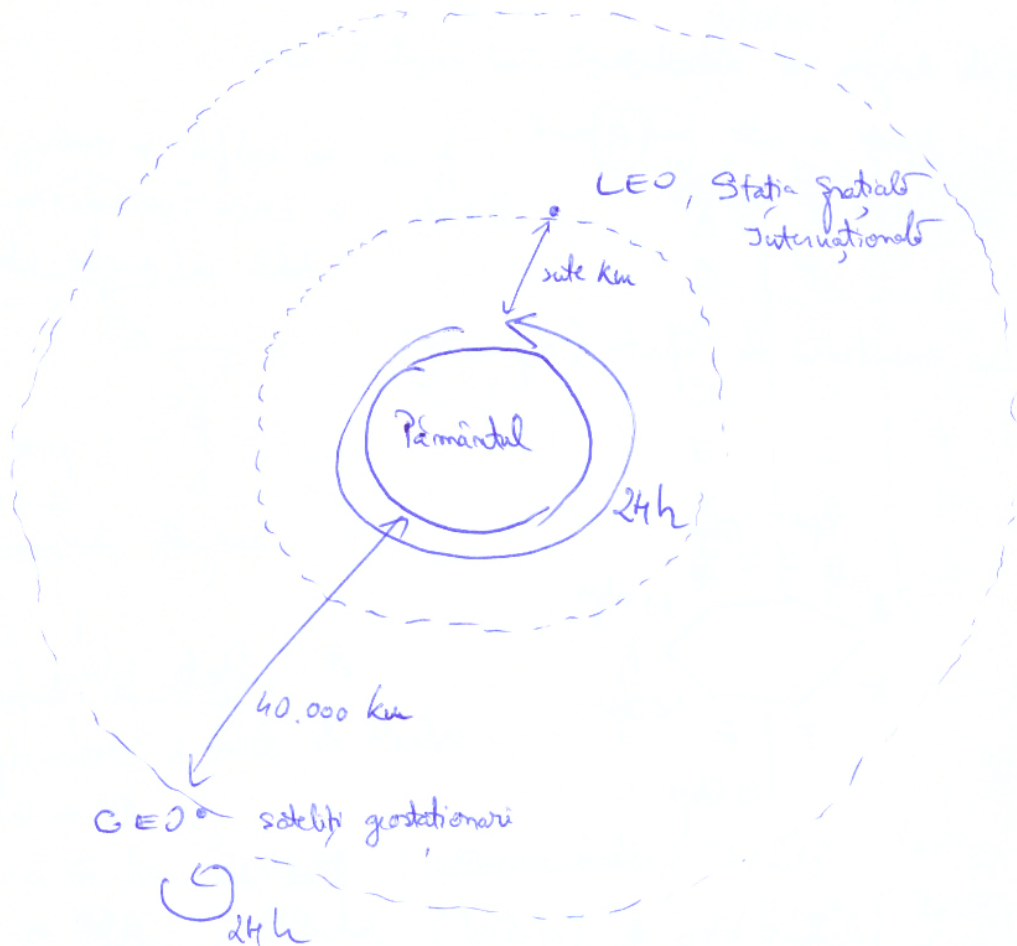 LEO, Stația Spațială
Internațională
sute km
Pământul
24h
40.000 km
GEO sateliți geostaționari
24h